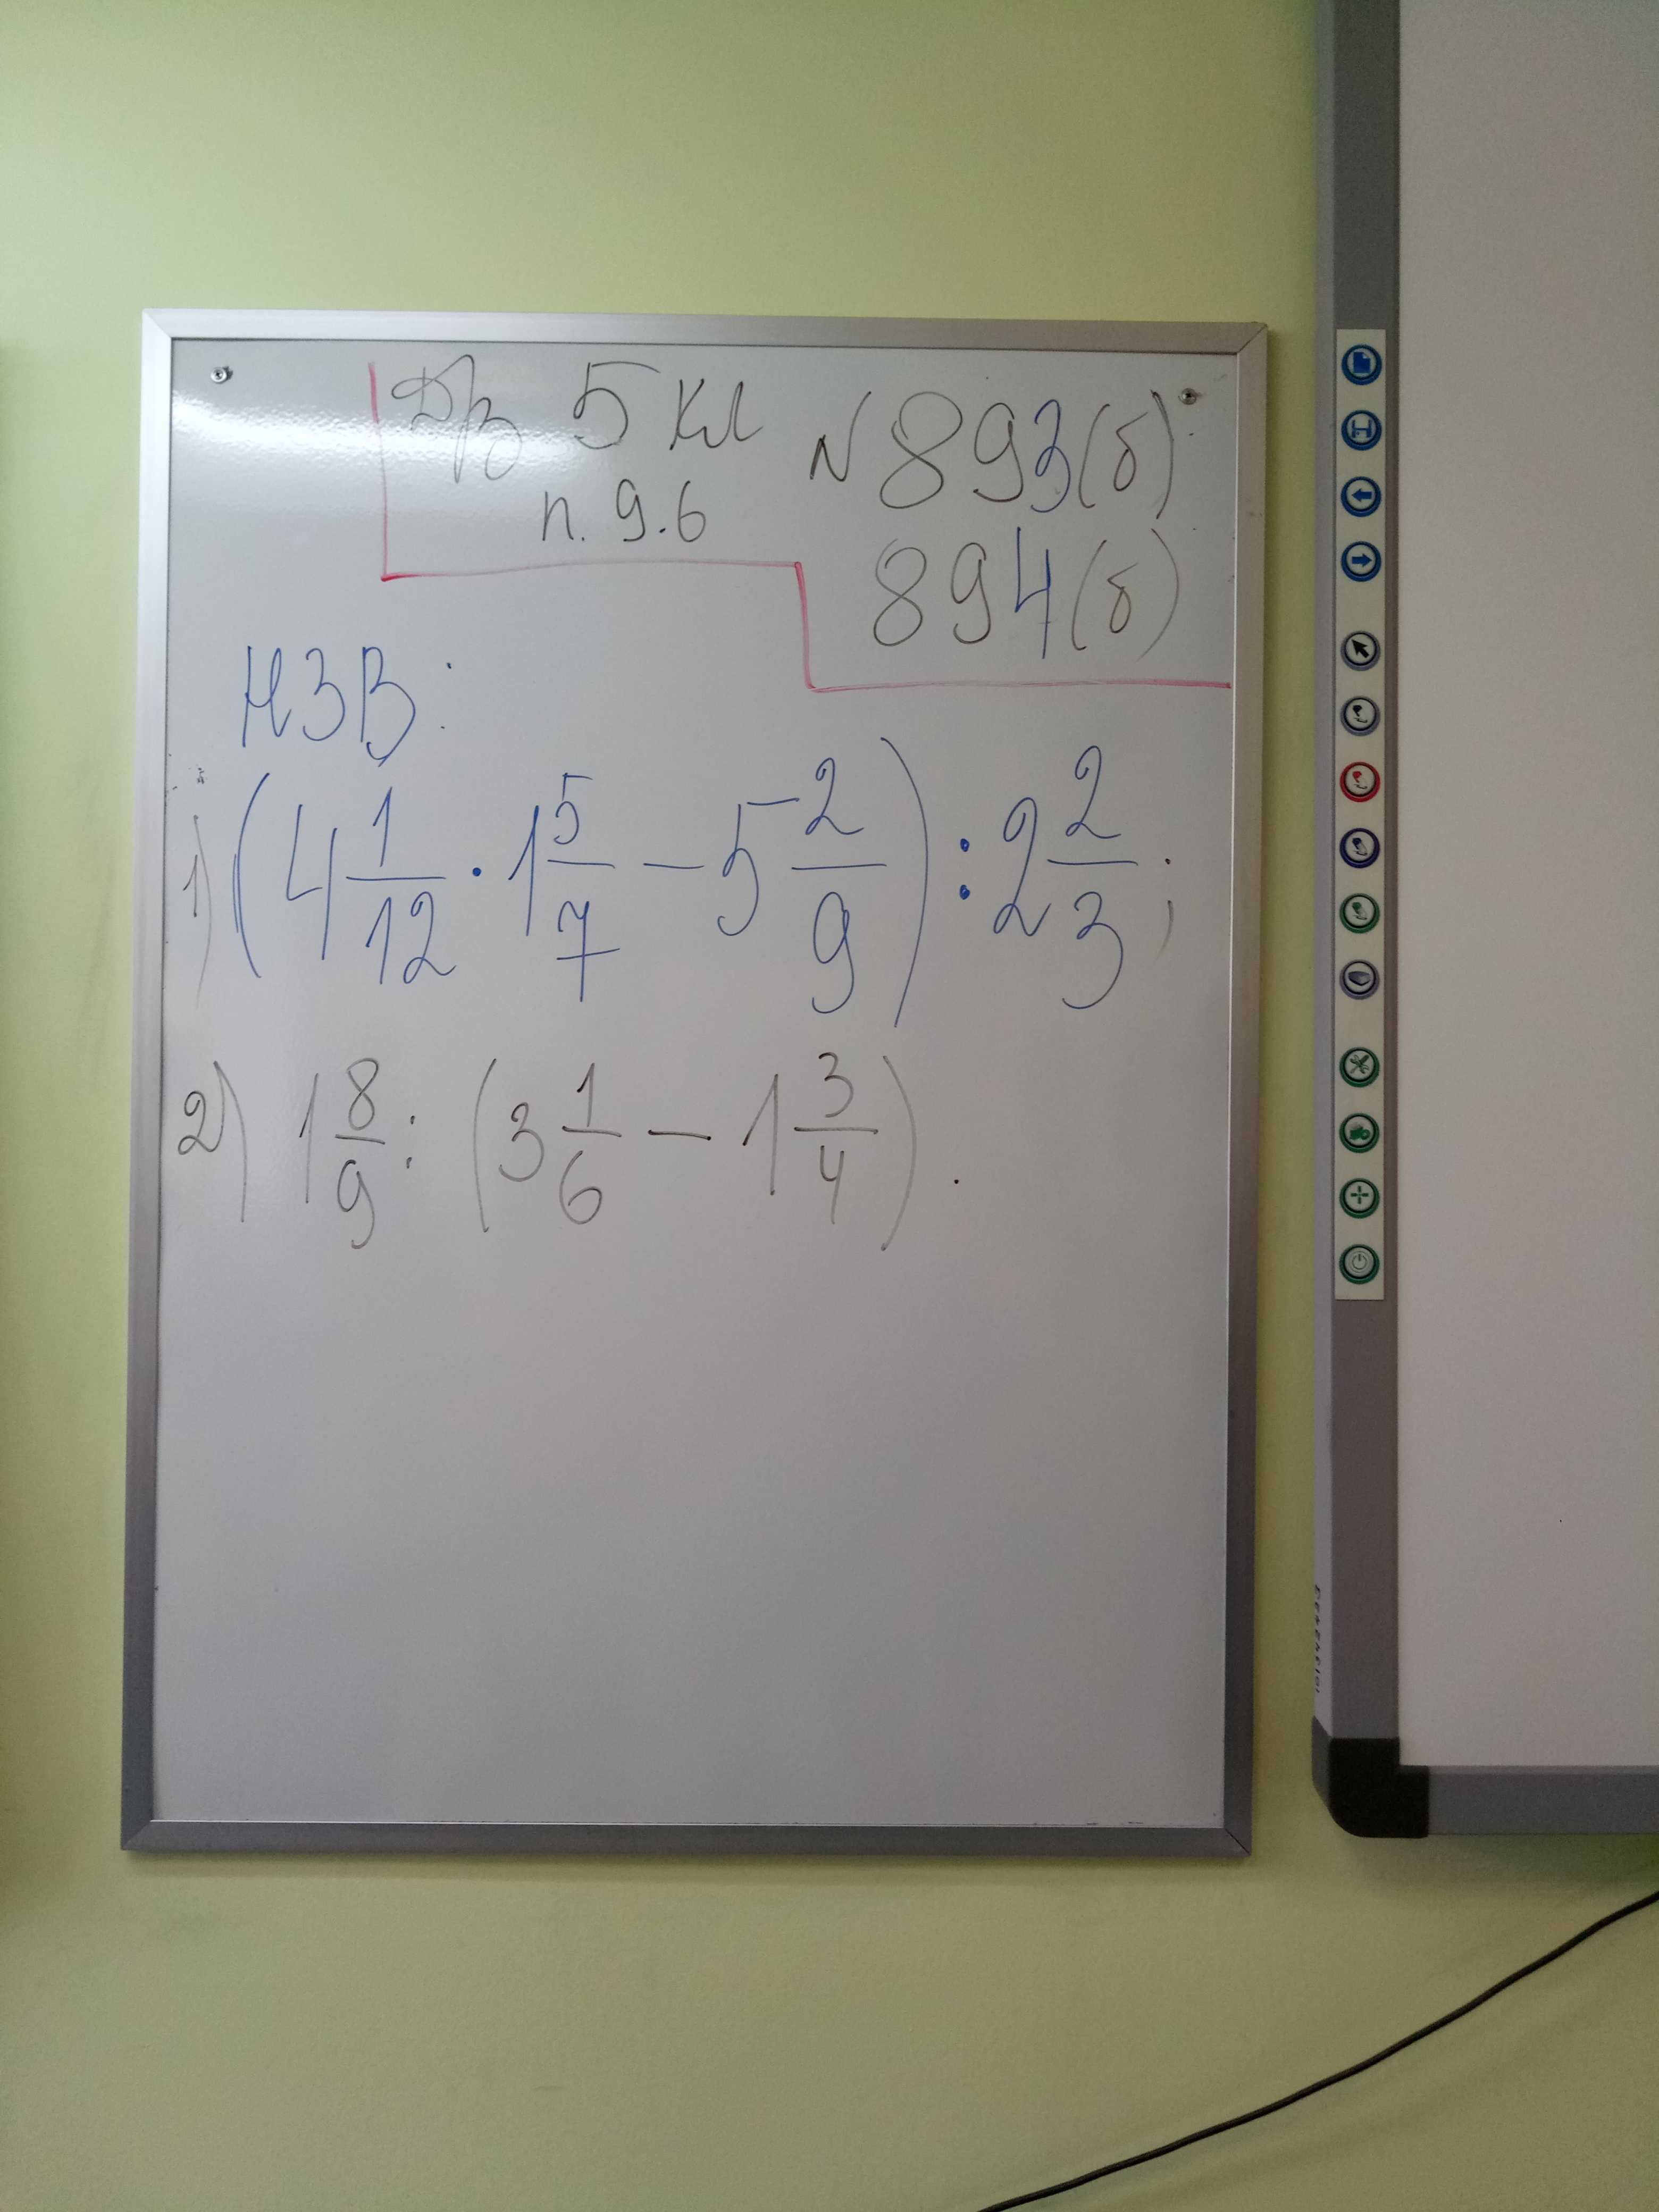 Д/з 5 кл № 893(б)
п. 9.6
894(б)
НЗВ:
1) (4 1/12 · 1 5/7 − 5 2/9) : 2 2/3;
2) 1 8/9 : (3 1/6 − 1 3/4).